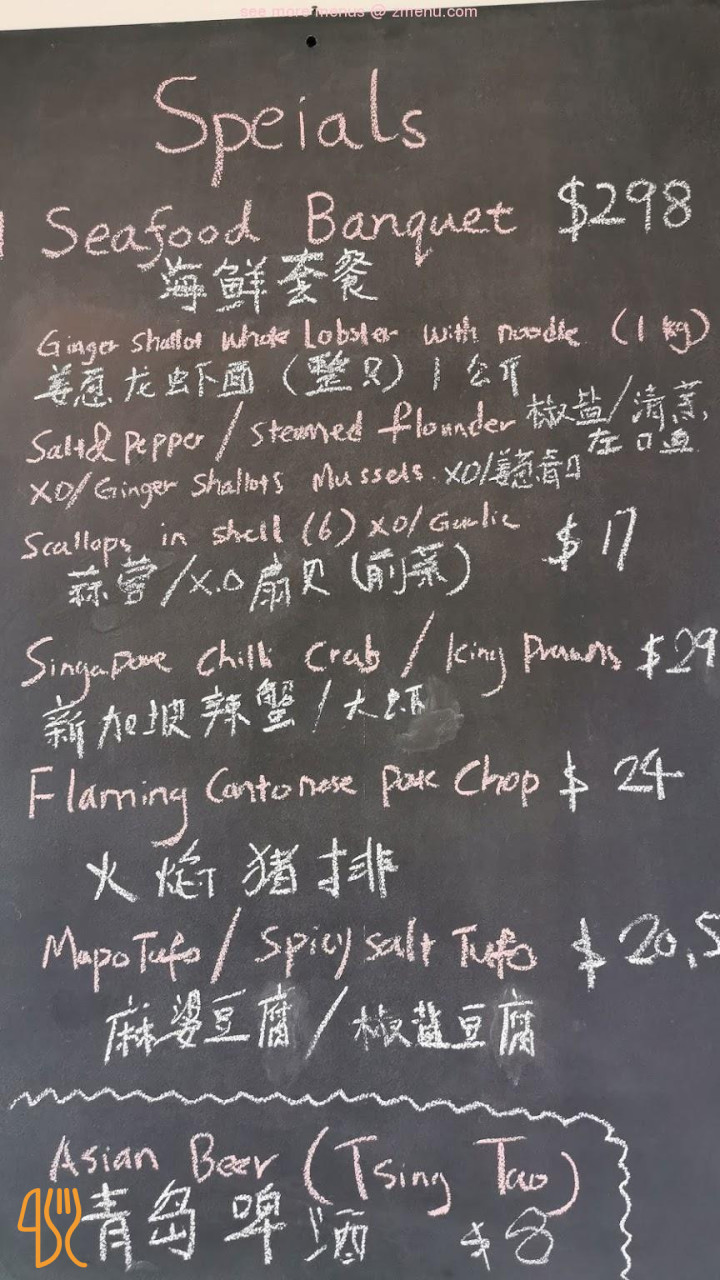 see more menus @ zmenu.com
Speials
Seafood Banquet $298
海鲜套餐
Ginger Shallot Whole Lobster with noodle (1 kg)
姜葱龙虾面（整只）1公斤
Salt & Pepper / Steamed flounder 椒盐/清蒸
左口鱼
XO/Ginger Shallots Mussels. XO/姜葱青口
Scallops in shell (6) XO/Garlic $17
蒜蓉/X.O扇贝（前菜）
Singapore Chilli Crab / King Prawns $29
新加坡辣蟹/大虾
Flaming Cantonese Pork Chop $24
火焰猪排
Mapo Tufo / Spicy salt Tufo $20.5
麻婆豆腐/椒盐豆腐
Asian Beer (Tsing Tao)
青岛啤酒 $8